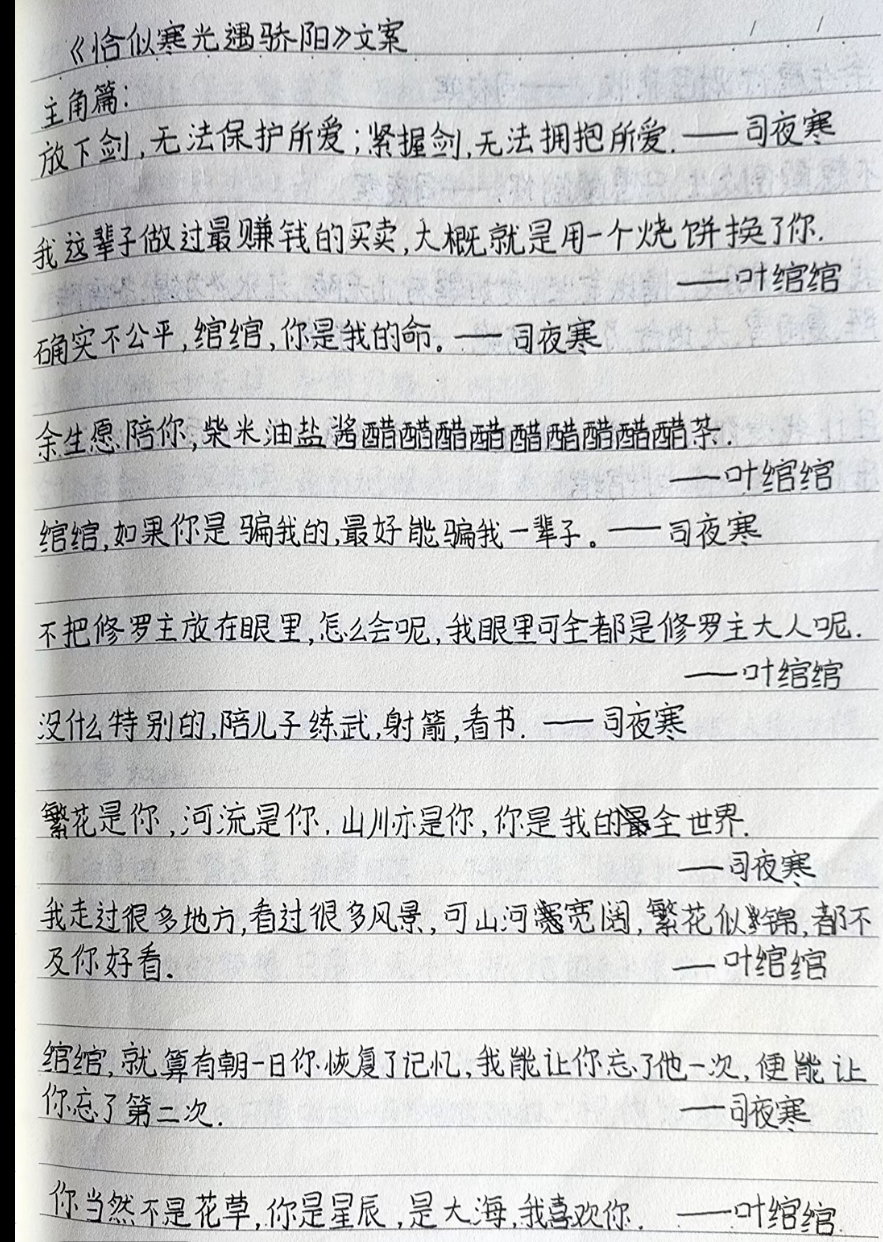 《恰似寒光遇骄阳》文案
主角篇:
放下剑,无法保护所爱;紧握剑,无法拥抱所爱. ——司夜寒
我这辈子做过最赚钱的买卖,大概就是用一个烧饼换了你.
——叶绾绾
确实不公平,绾绾,你是我的命。——司夜寒
余生愿陪你,柴米油盐酱醋醋醋醋醋醋醋醋醋杂.
——叶绾绾
绾绾,如果你是骗我的,最好能骗我一辈子。——司夜寒
不把修罗主放在眼里,怎么会呢,我眼里可全都是修罗主大人呢.
——叶绾绾
没什么特别的,陪儿子练武,射箭,看书. ——司夜寒
繁花是你,河流是你,山川亦是你,你是我的全世界.
——司夜寒
我走过很多地方,看过很多风景,可山河宽阔,繁花似锦,都不
及你好看. ——叶绾绾
绾绾,就算有朝一日你恢复了记忆,我能让你忘了他一次,便能让
你忘了第二次. ——司夜寒
你当然不是花草,你是星辰,是大海,我喜欢你. ——叶绾绾